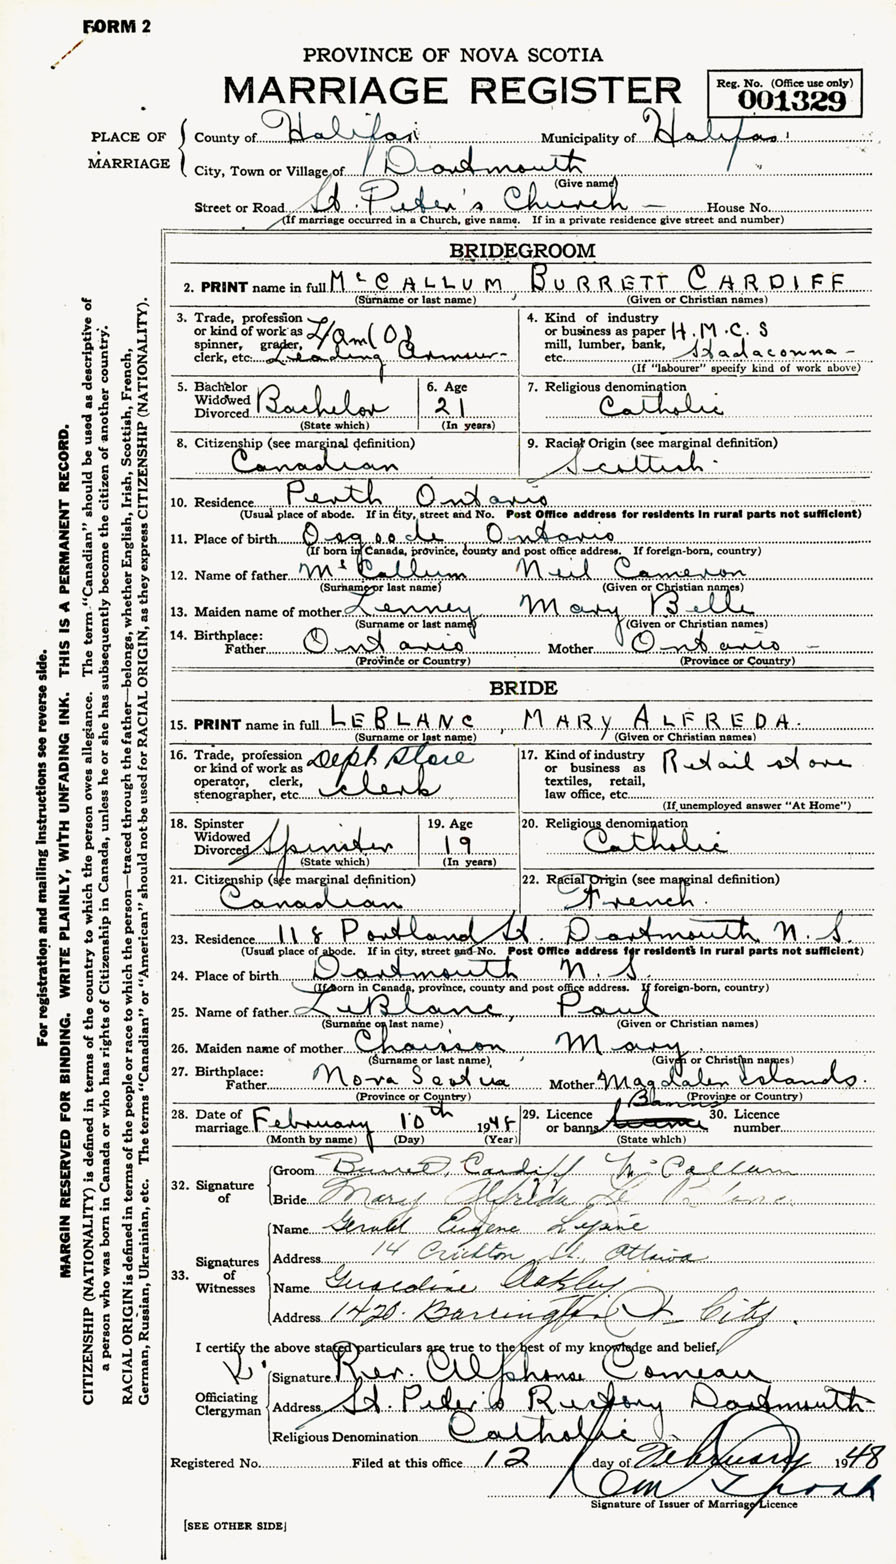 FORM 2
PROVINCE OF NOVA SCOTIA
MARRIAGE REGISTER
Reg. No. (Office use only)
001329
PLACE OF MARRIAGE
County of Halifax Municipality of Halifax
City, Town or Village of Dartmouth
(Give name)
Street or Road St. Peter's Church — House No.
(If marriage occurred in a Church, give name. If in a private residence give street and number)
BRIDEGROOM
2. PRINT name in full McCALLUM, BURRETT CARDIFF
(Surname or last name) (Given or Christian names)
3. Trade, profession or kind of work as spinner, grader, clerk, etc. Leading
4. Kind of industry or business as paper mill, lumber, bank, etc. H.M.C.S Stadaconna -
(If "labourer" specify kind of work above)
5. Bachelor Widowed Divorced Bachelor
(State which)
6. Age 21
(In years)
7. Religious denomination Catholic
8. Citizenship (see marginal definition) Canadian
9. Racial Origin (see marginal definition) Scottish
10. Residence Perth Ontario
(Usual place of abode. If in city, street and No. Post Office address for residents in rural parts not sufficient)
11. Place of birth Osgoode Ontario
(If born in Canada, province, county and post office address. If foreign-born, country)
12. Name of father McCallum Neil Cameron
(Surname or last name) (Given or Christian names)
13. Maiden name of mother Lenney Mary Belle
(Surname or last name) (Given or Christian names)
14. Birthplace: Father Ontario Mother Ontario -
(Province or Country) (Province or Country)
BRIDE
15. PRINT name in full LEBLANC, MARY ALFREDA.
(Surname or last name) (Given or Christian names)
16. Trade, profession or kind of work as operator, clerk, stenographer, etc. Dept Store clerk
17. Kind of industry or business as textiles, retail, law office, etc. Retail store
(If unemployed answer "At Home")
18. Spinster Widowed Divorced Spinster
(State which)
19. Age 19
(In years)
20. Religious denomination Catholic
21. Citizenship (see marginal definition) Canadian
22. Racial Origin (see marginal definition) French.
23. Residence 118 Portland St. Dartmouth N.S.
(Usual place of abode. If in city, street and No. Post Office address for residents in rural parts not sufficient)
24. Place of birth Dartmouth N.S.
(If born in Canada, province, county and post office address. If foreign-born, country)
25. Name of father LeBlanc, Paul
(Surname or last name) (Given or Christian names)
26. Maiden name of mother Chaisson, Mary.
(Surname or last name) (Given or Christian names)
27. Birthplace: Father Nova Scotia Mother Magdalen Islands.
(Province or Country) (Province or Country)
28. Date of marriage February 10th 1948
(Month by name) (Day) (Year)
29. Licence or banns Banns
(State which)
30. Licence number
32. Signature of
Groom Burrett Cardiff McCallum
Bride Mary Alfreda Le Blanc
33. Signatures of Witnesses
Name Gerald Eugene Lepine
Address 14 Crichton St. Ottawa
Name Geraldine Oakley
Address 1420 Barrington St City.
I certify the above stated particulars are true to the best of my knowledge and belief,
Officiating Clergyman
Signature Rev. Alphonse Comeau
Address St. Peter's Rectory Dartmouth
Religious Denomination Catholic
Registered No. Filed at this office 12 day of February 1948
Signature of Issuer of Marriage Licence
[SEE OTHER SIDE]
For registration and mailing instructions see reverse side.
MARGIN RESERVED FOR BINDING. WRITE PLAINLY, WITH UNFADING INK. THIS IS A PERMANENT RECORD.
CITIZENSHIP (NATIONALITY) is defined in terms of the country to which the person owes allegiance. The term "Canadian" should be used as descriptive of
a person who was born in Canada or who has rights of Citizenship in Canada, unless he or she has subsequently become the citizen of another country.
RACIAL ORIGIN is defined in terms of the people or race to which the person—traced through the father—belongs, whether English, Irish, Scottish, French,
German, Russian, Ukrainian, etc. The terms "Canadian" or "American" should not be used for RACIAL ORIGIN, as they express CITIZENSHIP (NATIONALITY).